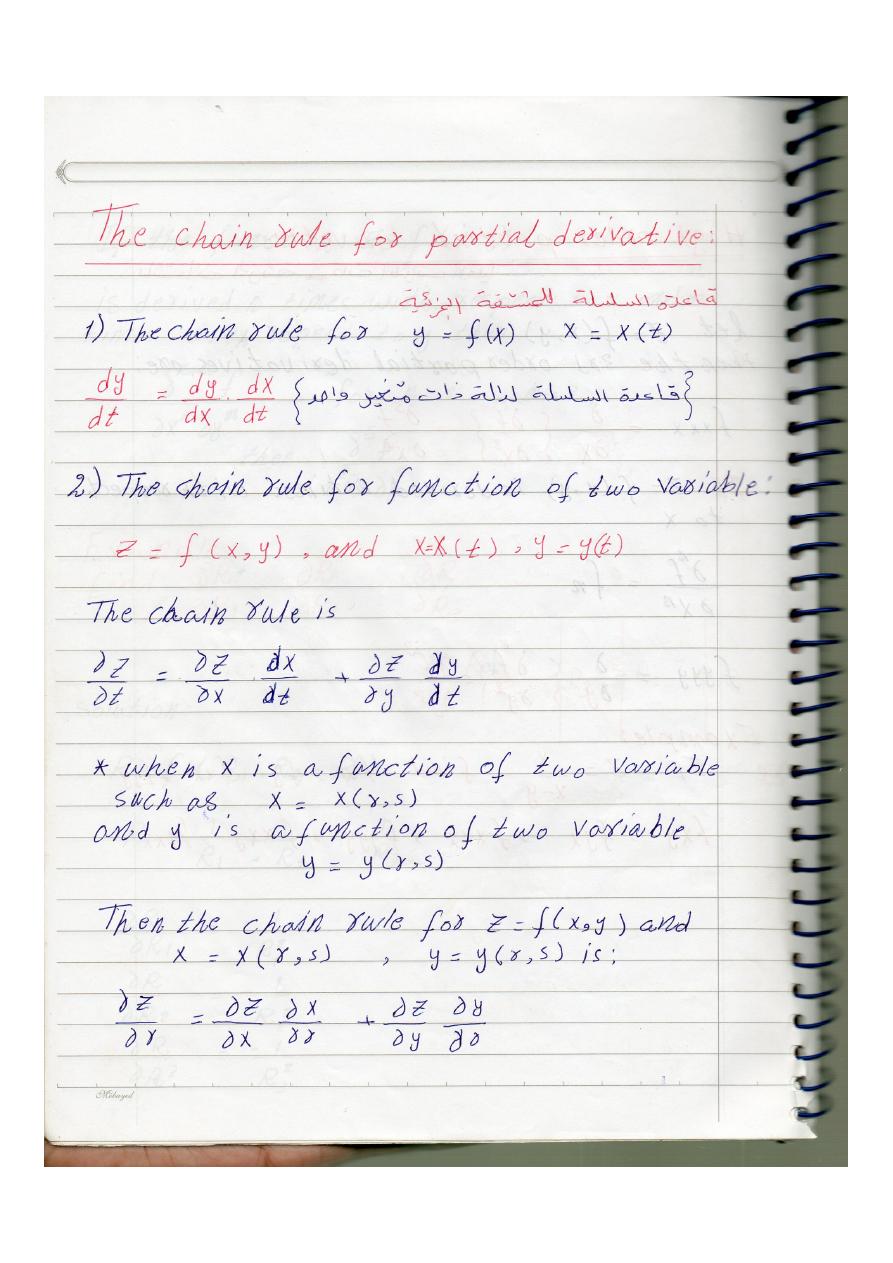 The chain rule for partial derivative:
قاعدة السلسلة للمشتقة الجزئية
1) The chain rule for y = f(x) x = x(t)
dy/dt = dy/dx . dx/dt {قاعدة السلسلة لدالة ذات متغير واحد}
2) The chain rule for function of two variable:
z = f (x,y) , and x=x(t) , y = y(t)
The chain rule is
∂z/∂t = ∂z/∂x dx/dt + ∂z/∂y dy/dt
* when x is a function of two variable
such as x = x(r,s)
and y is a function of two variable
y = y(r,s)
Then the chain rule for z = f(x,y) and
x = x(r,s) , y = y(r,s) is:
∂z/∂r = ∂z/∂x ∂x/∂r + ∂z/∂y
Mobayed